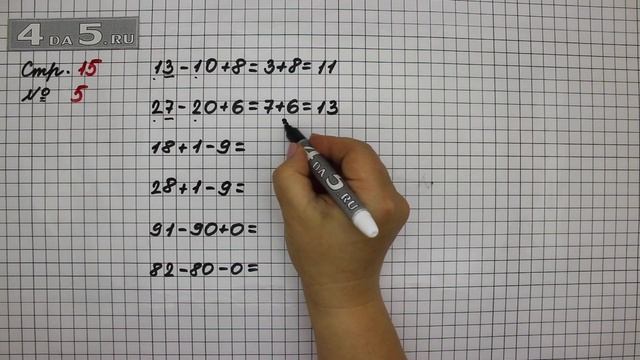 4DA5.RU
Стр. 15
№ 5
13-10+8=3+8=11
27-20+6=7+6=13
18+1-9=
28+1-9=
91-90+0=
82-80-0=
4DA5.RU